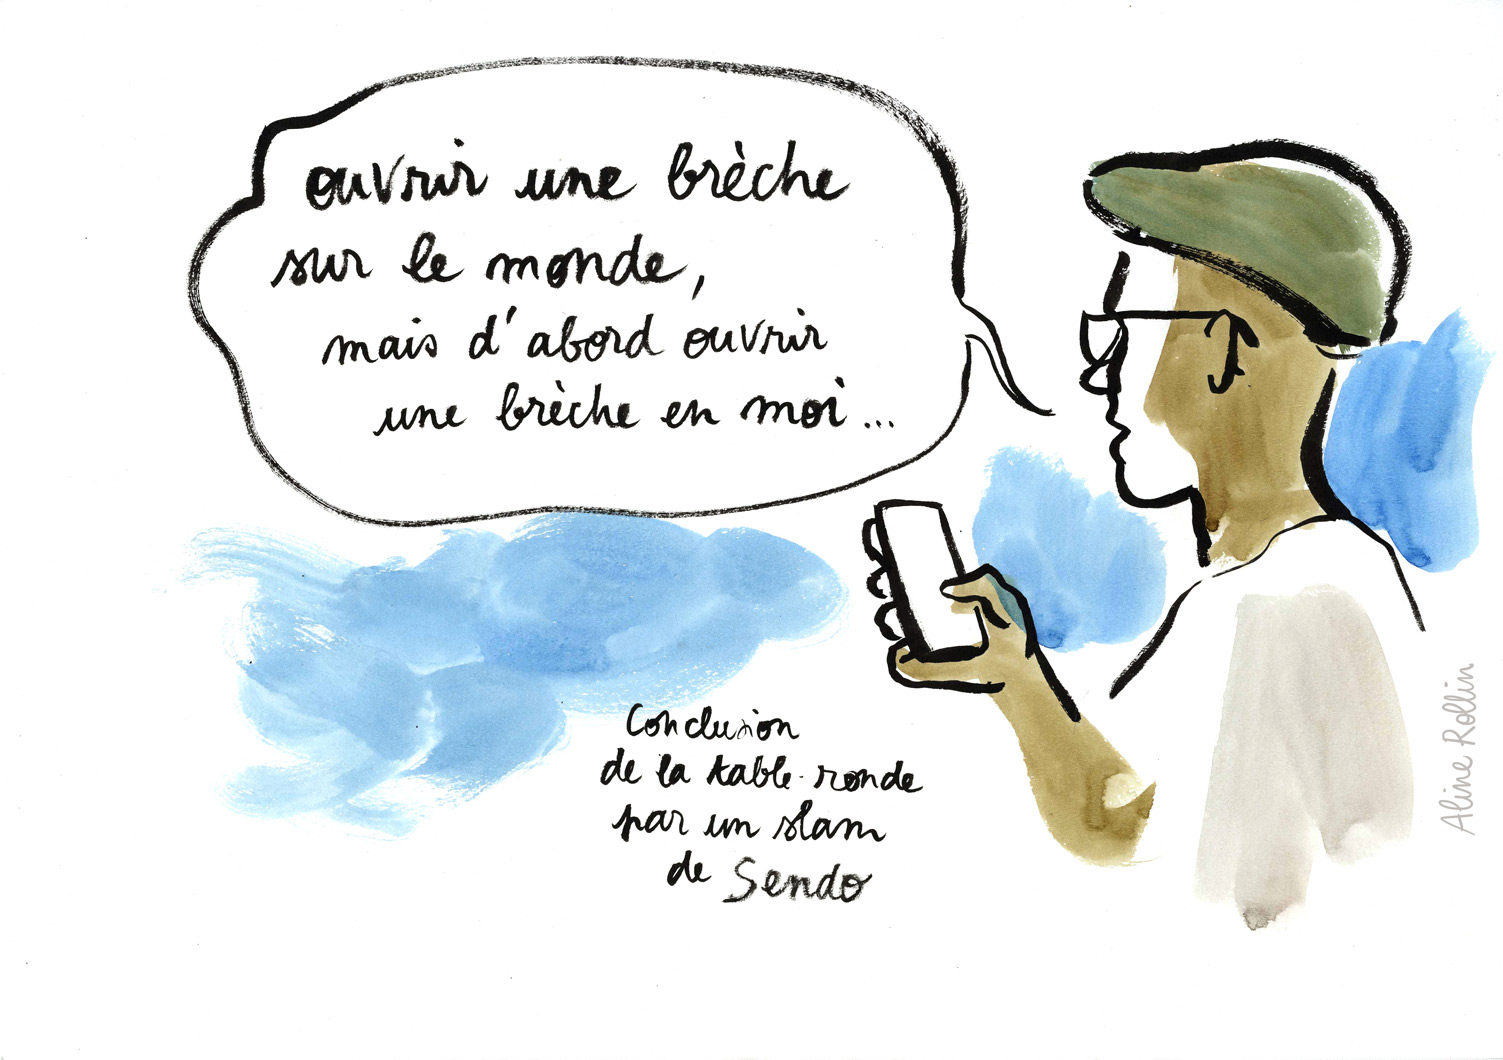 ouvrir une brèche
sur le monde,
mais d'abord ouvrir
une brèche en moi...
Conclusion
de la table-ronde
par un slam
de Sendo
Aline Rollin